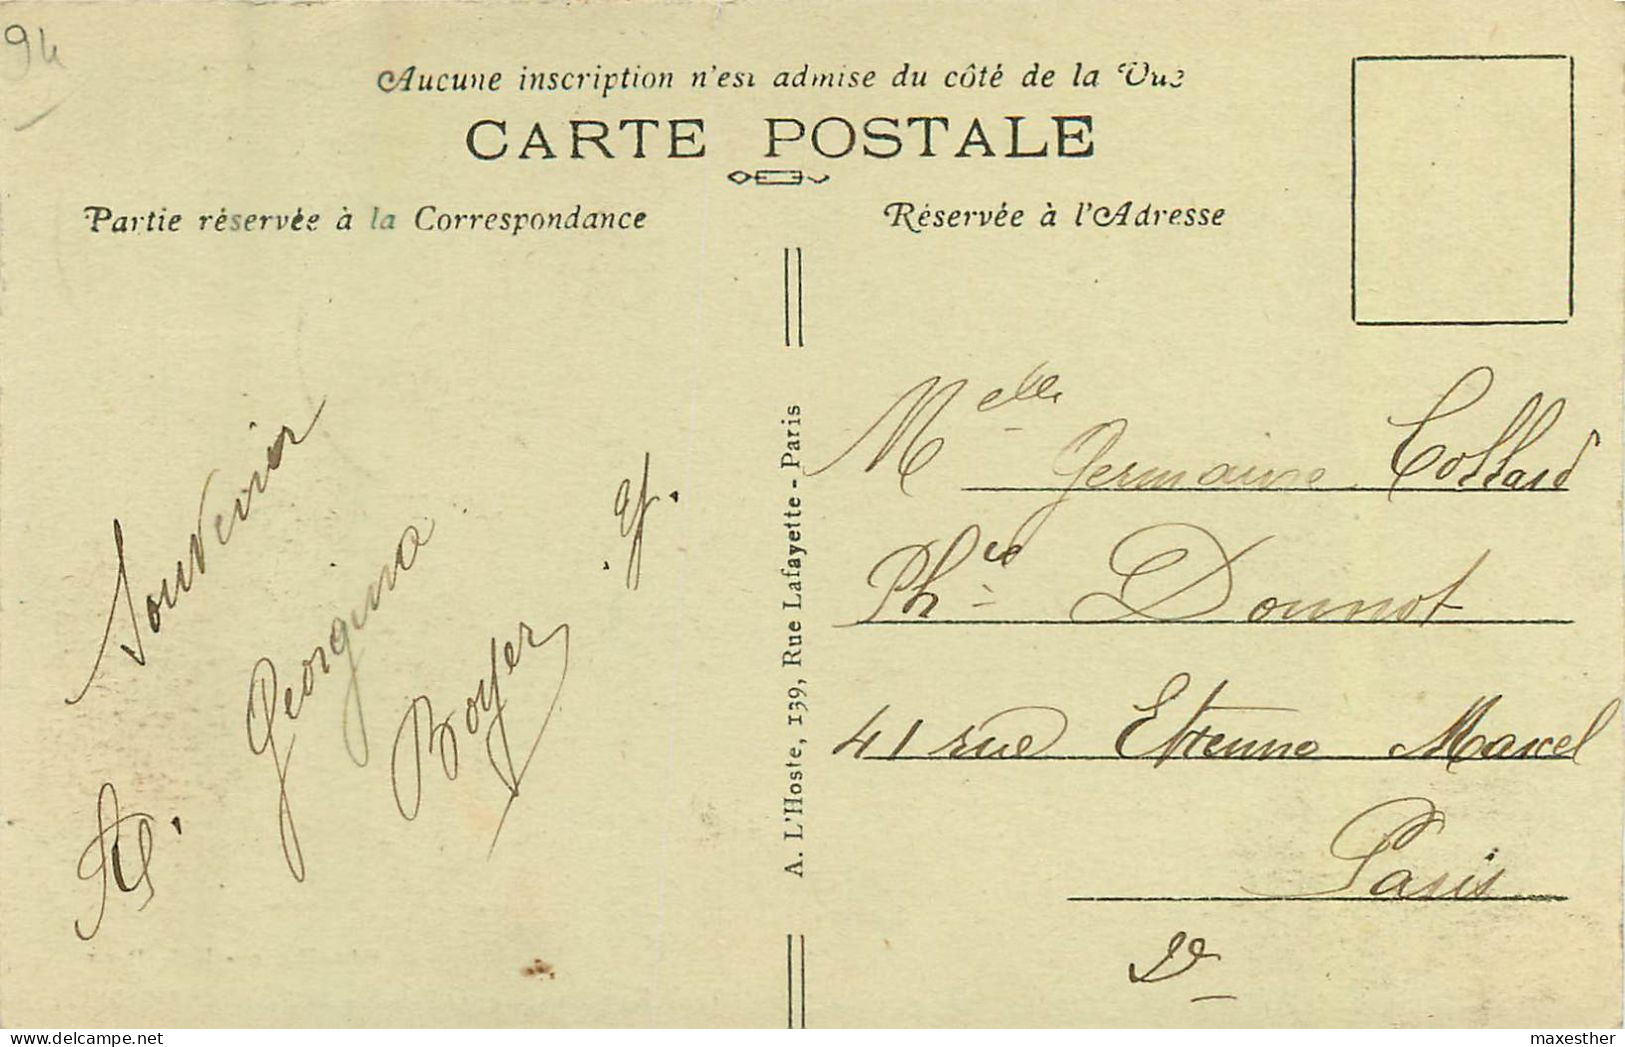 94
Aucune inscription n'est admise du côté de la Vue
CARTE POSTALE
Partie réservée à la Correspondance
Réservée à l'Adresse
Souvenir
Georgina
Boyer
A. L'Hoste, 139, Rue Lafayette - Paris
Melle Germaine Collard
Phcie Donnot
41 rue Etienne Marcel
Paris
delcampe.net
maxesther